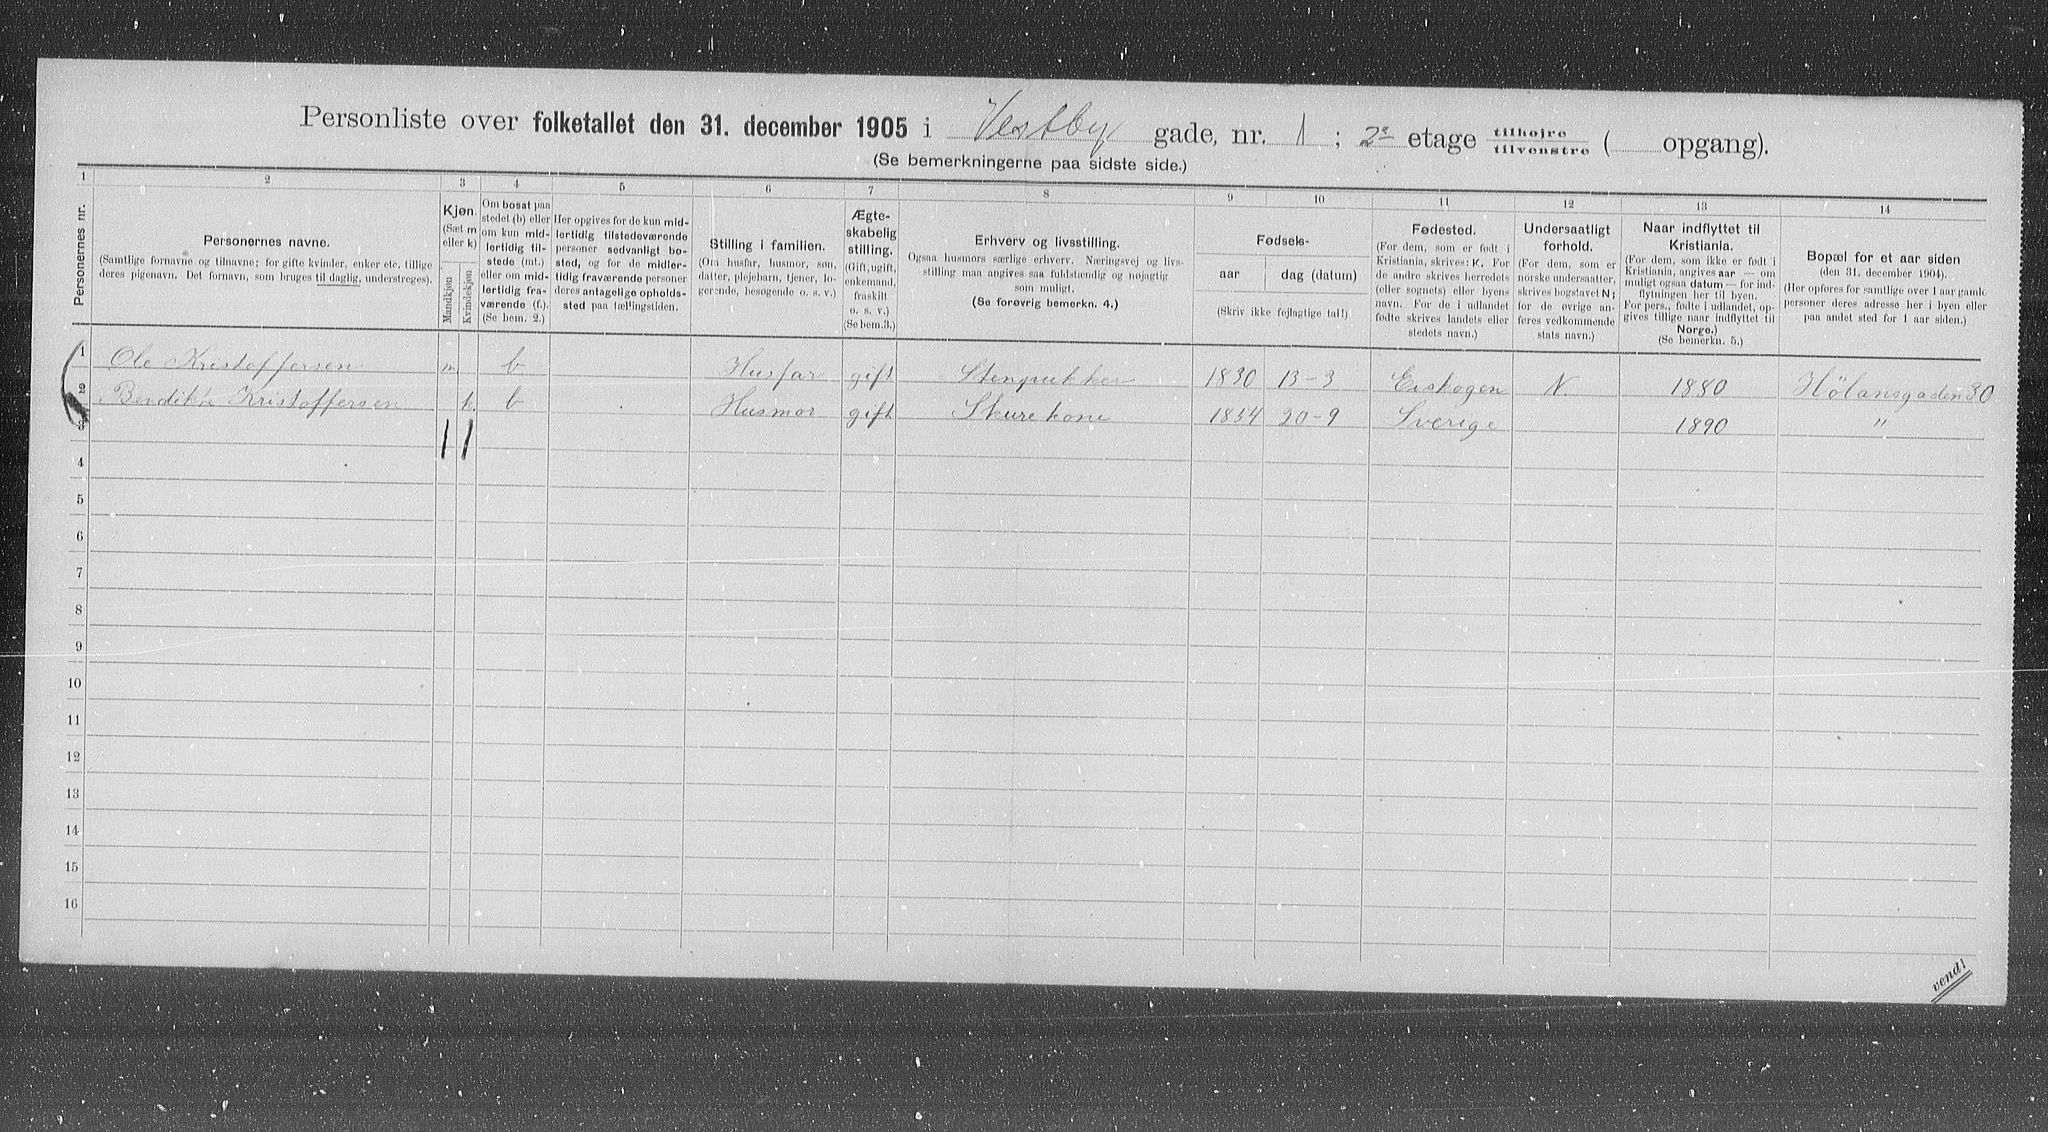 Personliste over folketallet den 31. december 1905 i Vestby gade, nr. 1; 2den etage tilhøjre/tilvenstre ( opgang).
(Se bemerkningerne paa sidste side.)
1 2 3 4 5 6 7 8 9 10 11 12 13 14
Personernes nr.
Personernes navne.
(Samtlige fornavne og tilnavne; for gifte kvinder, enker etc. tillige
deres pigenavn. Det fornavn, som bruges til daglig, understreges).
Kjøn.
(Sæt m
eller k)
Mandkjøn
Kvindekjøn
Om bosat paa
stedet (b) eller
om kun mid-
lertidig til-
stede (mt.)
eller om mid-
lertidig fra-
værende (f.).
(Se bem. 2.)
Her opgives for de kun mid-
lertidig tilstedeværende
personer sedvanligt bo-
sted, og for de midler-
tidig fraværende personer
deres antagelige opholds-
sted paa tællingstiden.
Stilling i familien.
(Om husfar, husmor, søn,
datter, plejebarn, tjener, lo-
gerende, besøgende o. s. v.)
Ægte-
skabelig
stilling.
(Gift, ugift,
enkemand,
fraskilt
o. s. v.)
(Se bem. 3.)
Erhverv og livsstilling.
Ogsaa husmors særlige erhverv. Næringsvej og livs-
stilling man angives saa fuldstændig og nøjagtig
som muligt.
(Se forøvrig bemerkn. 4.)
Fødsels-
aar dag (datum)
(Skriv ikke fejlagtige tal!)
Fødested.
(For dem, som er født i
Kristiania, skrives: K. For
de andre skrives herredets
(eller sognets) eller byens
navn. For de i udlandet
fødte skrives landets eller
stedets navn.)
Undersaatligt
forhold.
(For dem, som er
norske undersaatter,
skrives bogstavet N;
for de øvrige an-
føres vedkommende
stats navn.)
Naar indflyttet til
Kristiania.
(For dem, som ikke er født i
Kristiania, angives aar — om
muligt ogsaa datum — for ind-
flytningen her til byen.
For pers., fødte i udlandet, op-
gives tillige naar indflyttet til
Norge.)
(Se bemerkn. 5.)
Bopæl for et aar siden
(den 31. december 1904).
(Her opføres for samtlige over 1 aar gamle
personer deres adresse her i byen eller
paa andet sted for 1 aar siden.)
1 Ole Kristoffersen m b Husfar gift Stenpukker 1830 13-3 Eiskogen N. 1880 Hølansgaden 30
2 Bendikte Kristoffersen k b Husmor gift Skurekone 1854 20-9 Sverige 1890 "
3 1 1
4
5
6
7
8
9
10
11
12
13
14
15
16
vend!